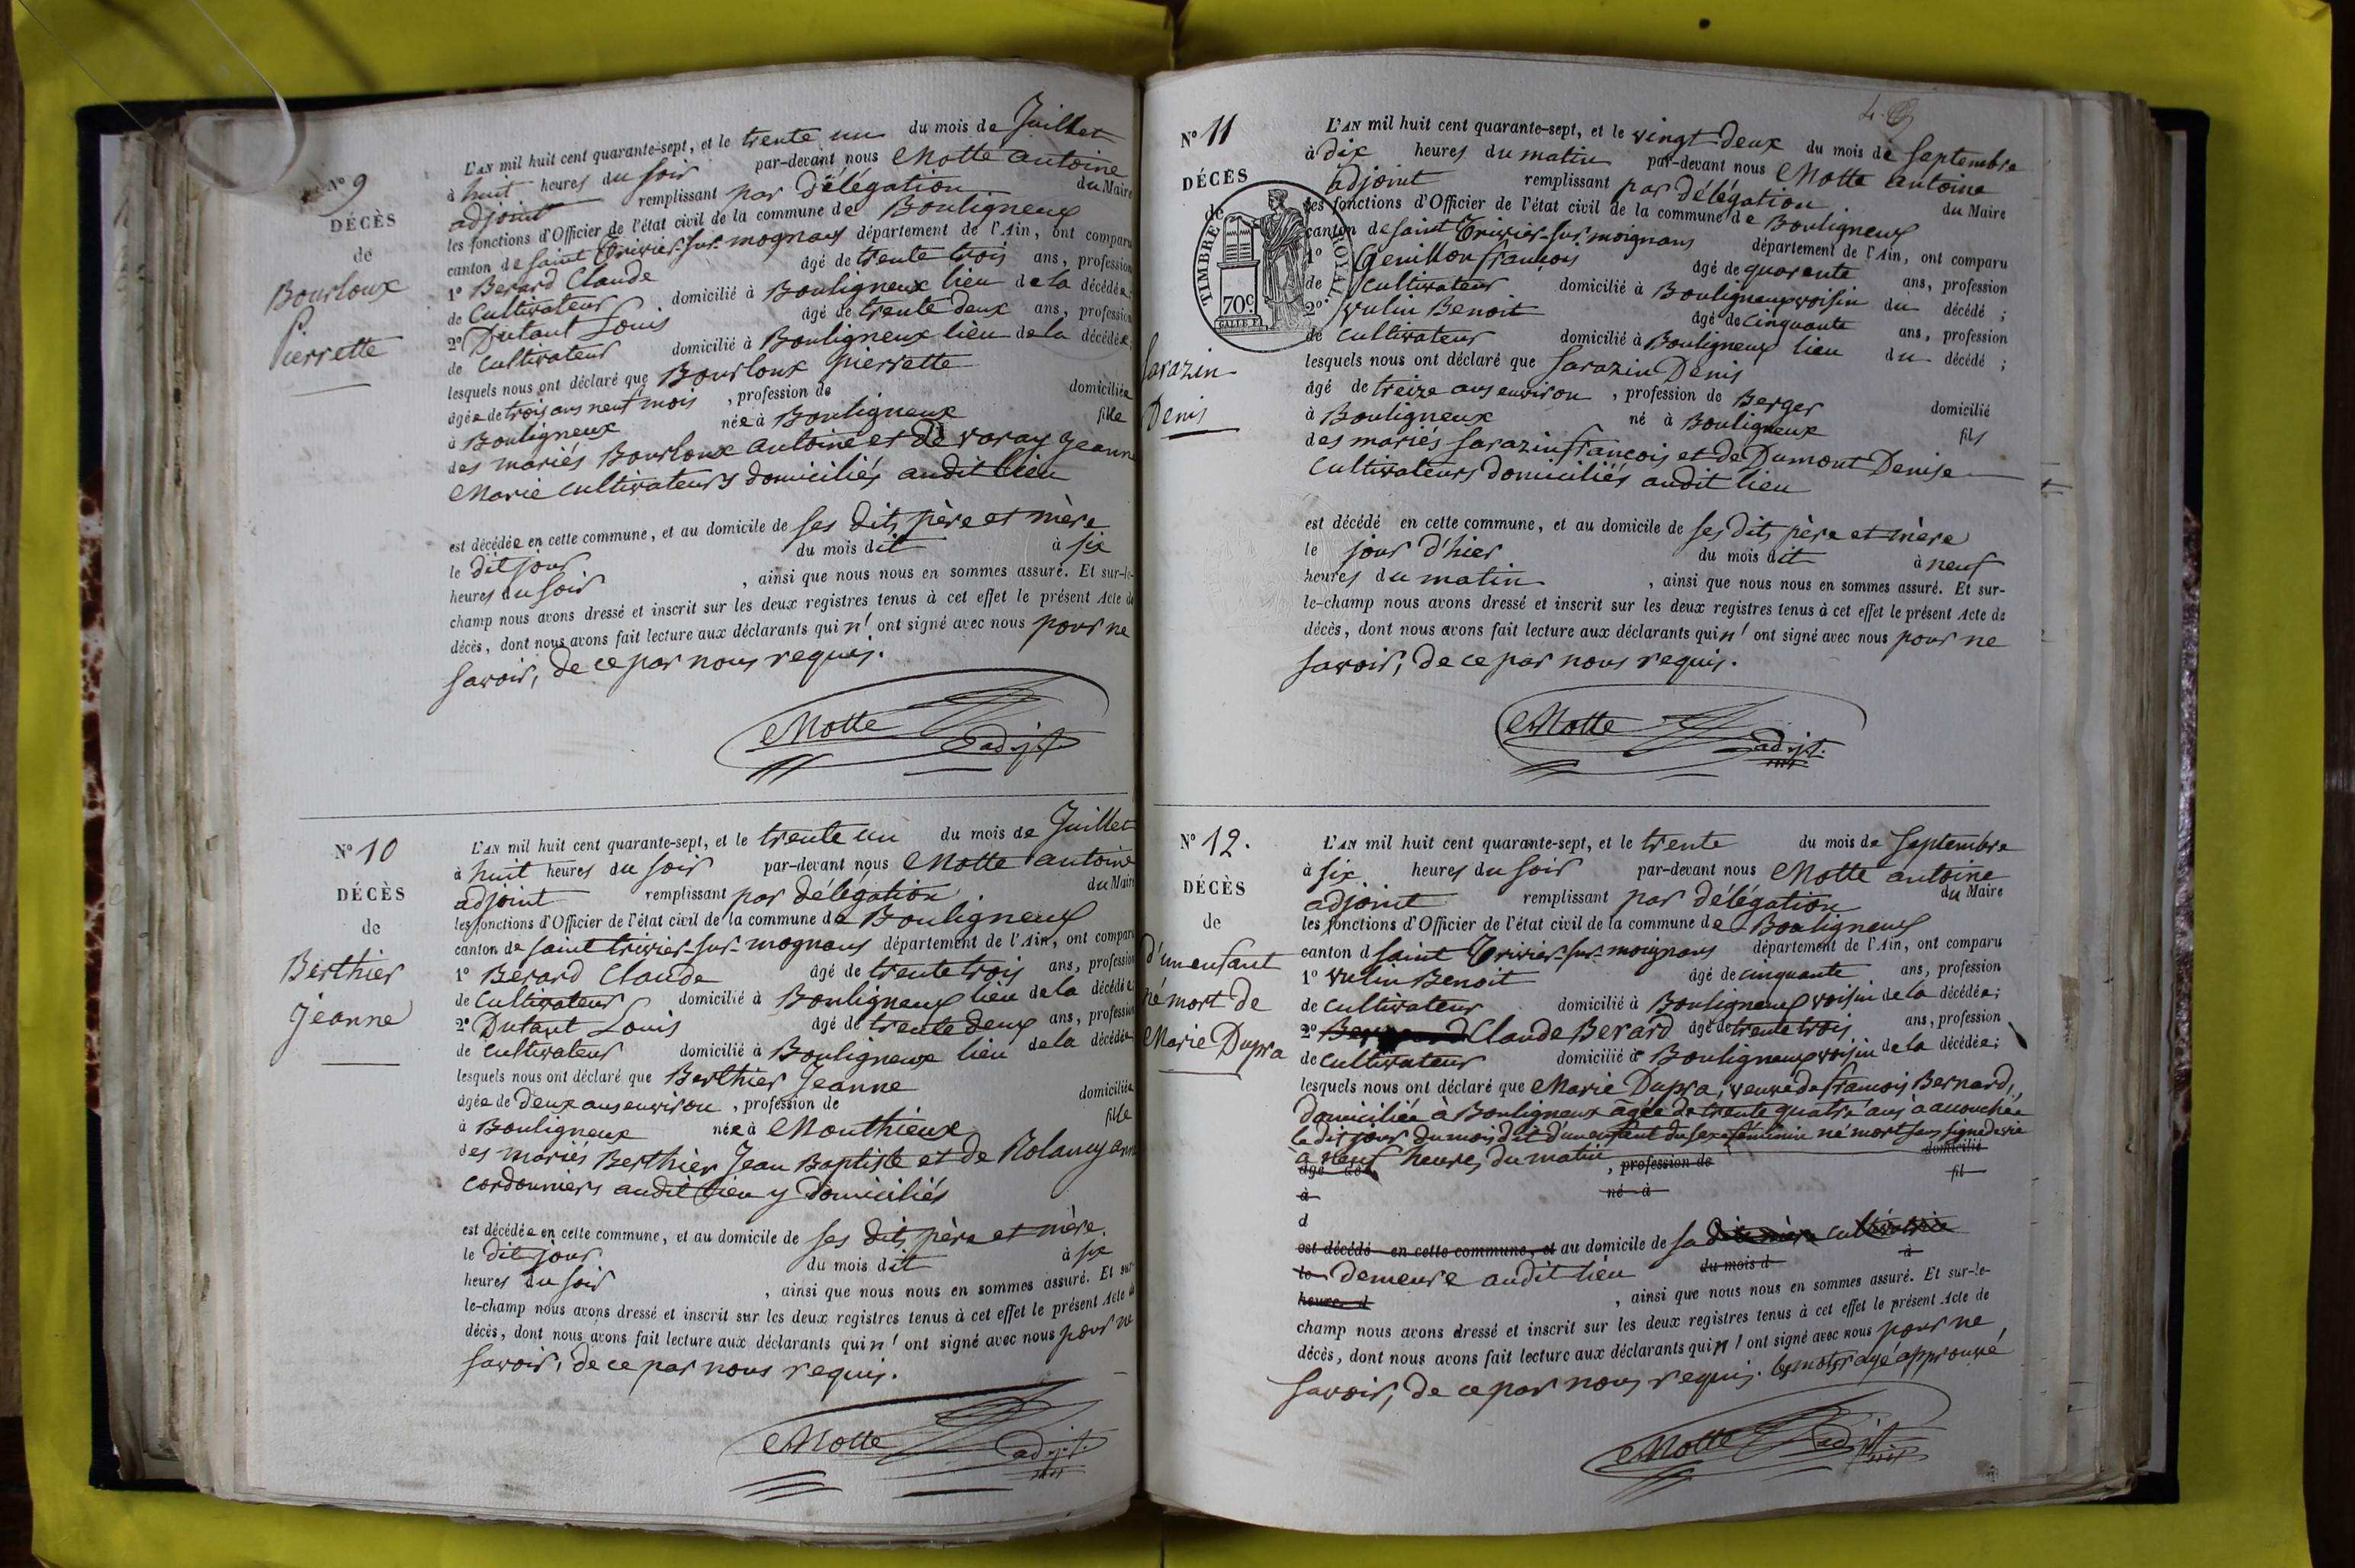 N° 9
DÉCÈS
de
Bourloux
Pierrette
L'AN mil huit cent quarante-sept, et le trente un du mois de Juillet
à huit heures du soir par-devant nous Motte antoine
adjoint remplissant par délégation du Maire
les fonctions d'Officier de l'état civil de la commune de Bouligneux
canton de saint Trivier-sur-mognans département de l'Ain, ont comparu
1° Berard Claude âgé de trente trois ans, profession
de Cultivateur domicilié à Bouligneux lieu de la décédée;
2° Dutant Louis âgé de trente deux ans, profession
de Cultivateur domicilié à Bouligneux lieu de la décédée;
lesquels nous ont déclaré que Bourloux pierrette
âgée de trois ans neuf mois, profession de domiciliée
à Bouligneux née à Bouligneux fille
des mariés Bourloux antoine et de varay Jeanne
Marie cultivateurs domiciliés audit lieu
est décédée en cette commune, et au domicile de ses dits père et mère
le dit jour du mois dit à six
heures du soir, ainsi que nous nous en sommes assuré. Et sur-le-
champ nous avons dressé et inscrit sur les deux registres tenus à cet effet le présent Acte de
décès, dont nous avons fait lecture aux déclarants qui n' ont signé avec nous pour ne
savoir, de ce par nous requis.
Motte adjt.
N° 10
DÉCÈS
de
Berthier
Jeanne
L'AN mil huit cent quarante-sept, et le trente un du mois de Juillet
à huit heures du soir par-devant nous Motte antoine
adjoint remplissant par délégation du Maire
les fonctions d'Officier de l'état civil de la commune de Bouligneux
canton de saint trivier-sur-mognans département de l'Ain, ont comparu
1° Berard Claude âgé de trente trois ans, profession
de Cultivateur domicilié à Bouligneux lieu de la décédée
2° Dutant Louis âgé de trente deux ans, profession
de cultivateur domicilié à Bouligneux lieu de la décédée
lesquels nous ont déclaré que Berthier Jeanne
âgée de deux ans environ, profession de domiciliée
à Bouligneux née à Monthieux fille
des mariés Berthier Jean Baptiste et de Rolancy ann
cordonniers audit lieu y domiciliés
est décédée en cette commune, et au domicile de ses dits père et mère.
le dit jour du mois dit à six
heures du soir, ainsi que nous nous en sommes assuré. Et sur-
le-champ nous avons dressé et inscrit sur les deux registres tenus à cet effet le présent Acte de
décès, dont nous avons fait lecture aux déclarants qui n' ont signé avec nous pour ne
savoir, de ce par nous requis.
Motte adjt.
N° 11
DÉCÈS
de
TIMBRE ROYAL
70c.
Sarazin
Denis
L'AN mil huit cent quarante-sept, et le vingt deux du mois de septembre
à dix heures du matin par-devant nous Motte antoine
adjoint remplissant par délégation du Maire
les fonctions d'Officier de l'état civil de la commune de Bouligneux
canton de saint Trivier-sur-moignans département de l'Ain, ont comparu
1° Genillon françois âgé de quarante ans, profession
de Cultivateur domicilié à Bouligneux voisin du décédé;
2° vulin Benoit âgé de cinquante ans, profession
de cultivateur domicilié à Bouligneux lieu du décédé;
lesquels nous ont déclaré que Sarazin Denis
âgé de treize ans environ, profession de Berger domicilié
à Bouligneux né à Bouligneux fils
des mariés sarazin francois et de Dumont Denise
Cultivateurs domiciliés audit lieu
est décédé en cette commune, et au domicile de ses dits père et mère
le jour d'hier du mois dit à neuf
heures du matin, ainsi que nous nous en sommes assuré. Et sur-
le-champ nous avons dressé et inscrit sur les deux registres tenus à cet effet le présent Acte de
décès, dont nous avons fait lecture aux déclarants qui n' ont signé avec nous pour ne
savoir, de ce par nous requis.
Motte adjt.
N° 12.
DÉCÈS
de
d'un enfant
né mort de
Marie Dupra
L'AN mil huit cent quarante-sept, et le trente du mois de septembre
à six heures du soir par-devant nous Motte antoine
adjoint remplissant par délégation du Maire
les fonctions d'Officier de l'état civil de la commune de Bouligneux
canton d saint Trivier-sur-moignans département de l'Ain, ont comparu
1° vulin Benoit âgé de cinquante ans, profession
de cultivateur domicilié à Bouligneux voisin de la décédée;
2° Claude Berard âgé de trente trois ans, profession
de cultivateur domicilié à Bouligneux voisin de la décédée;
lesquels nous ont déclaré que Marie Dupra, veuve de francois Bernard,
domiciliée à Bouligneux âgée de trente quatre ans a accouchée
le dit jour du mois dit d'un enfant du sexe féminin né mort sans signe de vie
a neuf heures du matin domicilié
âgé de, profession de fil
à né à
d
est décédé en cette commune, et au domicile de sa dite mère cultivatrice
le demeure audit lieu du mois d à
heures d, ainsi que nous nous en sommes assuré. Et sur-le-
champ nous avons dressé et inscrit sur les deux registres tenus à cet effet le présent Acte de
décès, dont nous avons fait lecture aux déclarants qui n' ont signé avec nous pour ne
savoir, de ce par nous requis. les mots rayé approuvé
Motte adjt